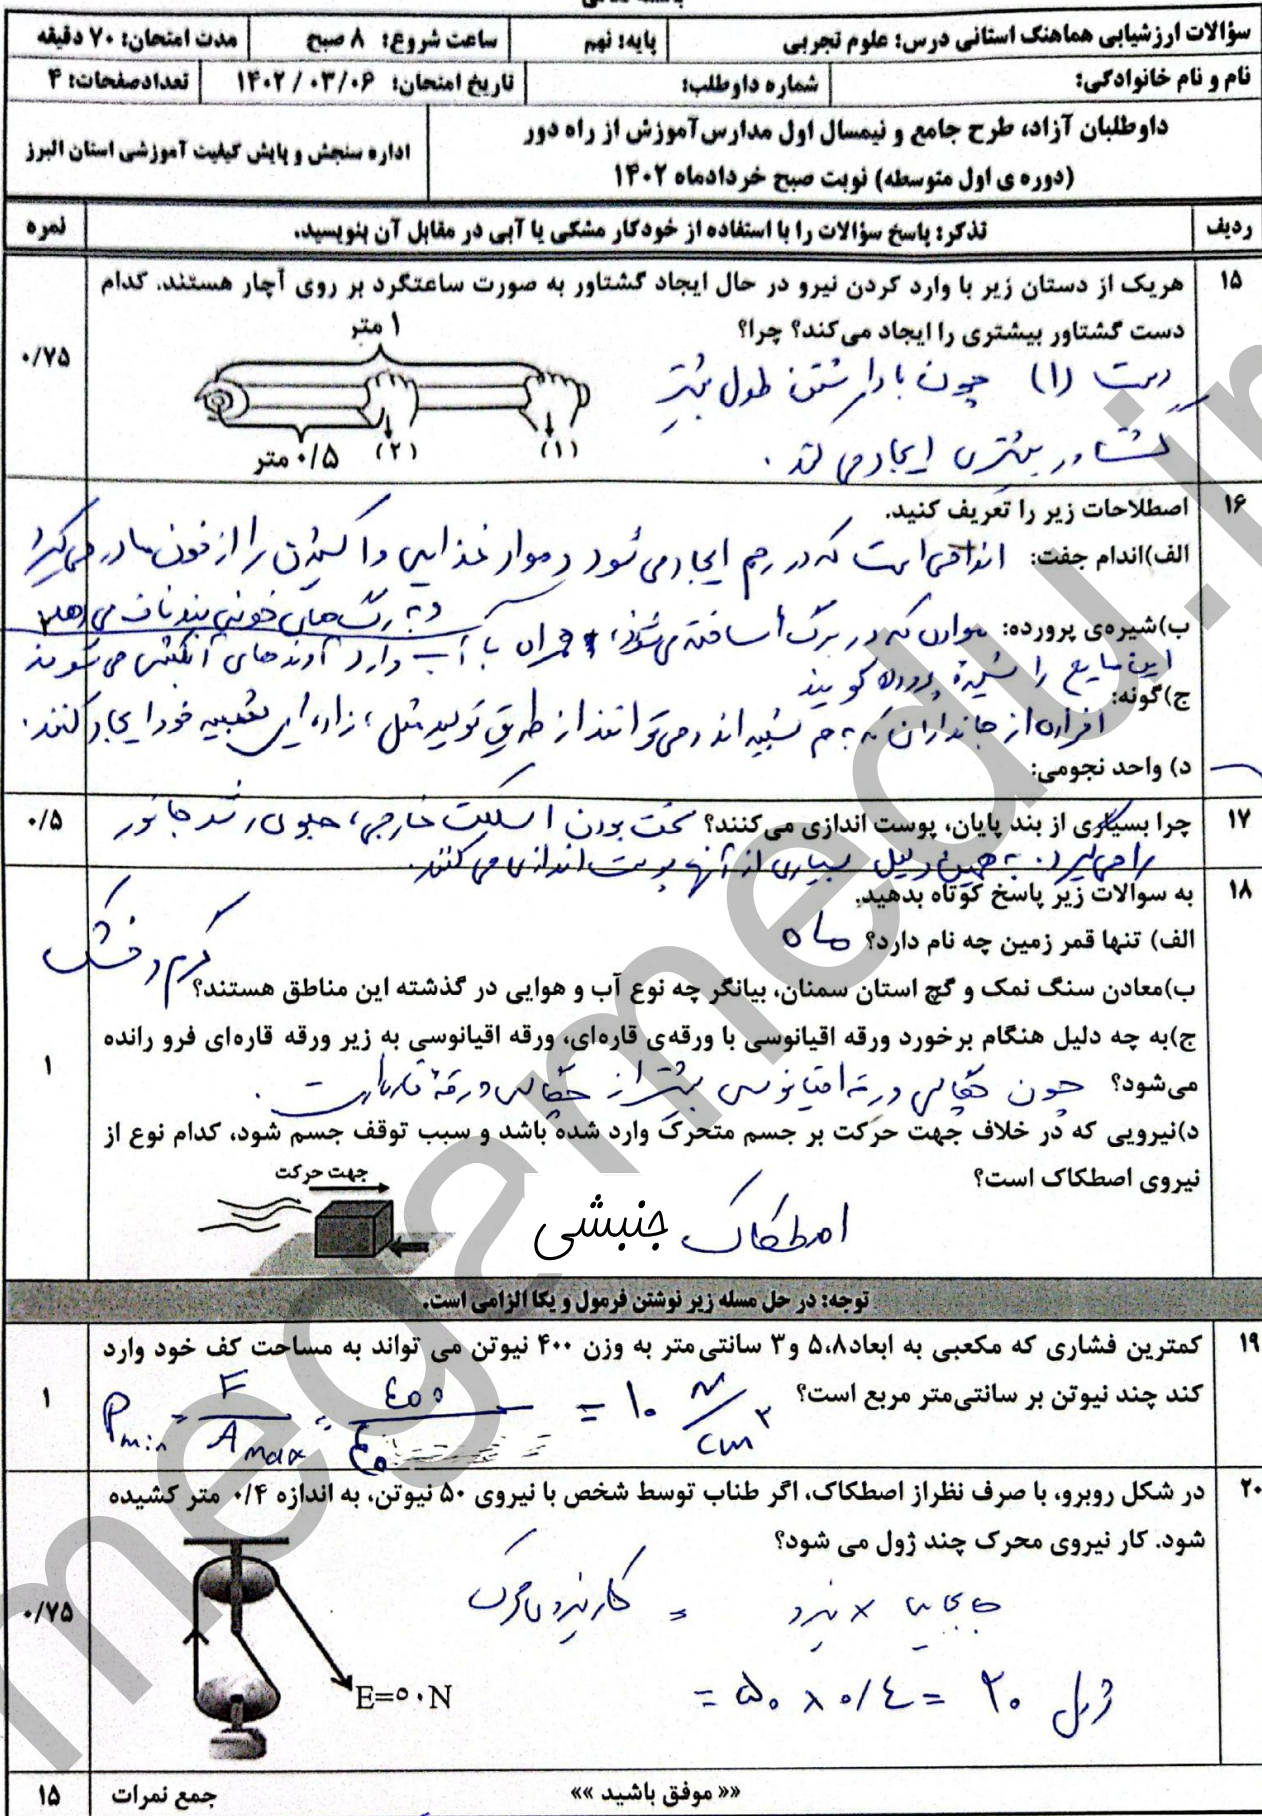 سؤالات ارزشیابی هماهنگ استانی درس: علوم تجربی
پایه: نهم
ساعت شروع: ۸ صبح
مدت امتحان: ۷۰ دقیقه
نام و نام خانوادگی:
شماره داوطلب:
تاریخ امتحان: ۱۴۰۲/۰۳/۰۶
تعدادصفحات: ۴
داوطلبان آزاد، طرح جامع و نیمسال اول مدارس آموزش از راه دور
(دوره ی اول متوسطه) نوبت صبح خردادماه ۱۴۰۲
اداره سنجش و پایش کیفیت آموزشی استان البرز
ردیف
تذکر: پاسخ سؤالات را با استفاده از خودکار مشکی یا آبی در مقابل آن بنویسید.
نمره
۱۵
هریک از دستان زیر با وارد کردن نیرو در حال ایجاد گشتاور به صورت ساعتگرد بر روی آچار هستند. کدام
دست گشتاور بیشتری را ایجاد می‌کند؟ چرا؟
۰/۷۵
۱ متر
۰/۵ متر
(۲)
(۱)
دست (۱) چون با داشتن طول بیشتر
گشتاور بیشتری ایجاد می کند.
۱۶
اصطلاحات زیر را تعریف کنید.
الف)اندام جفت: اندامی است که در رحم ایجاد می شود و مواد غذایی و اکسیژن را از خون مادر می‌گیرد
و به رگ های خونی بند ناف می دهد
۲
ب)شیره‌ی پرورده: موادی که در برگ ساخته می شوند، همراه با آب وارد آوندهای آبکشی می شوند
این مایع را شیره پرورده گویند
ج)گونه: افرادی از جانداران که به هم شبیه اند و می توانند از طریق تولید مثل، زاده ایی شبیه خود ایجاد کنند.
د) واحد نجومی:
۱۷
چرا بسیاری از بند پایان، پوست اندازی می‌کنند؟ سخت بودن اسکلت خارجی، جلوی رشد جانور
را می‌گیرد. به همین دلیل بسیاری از آنها پوست اندازی می کنند.
۰/۵
۱۸
به سوالات زیر پاسخ کوتاه بدهید.
الف) تنها قمر زمین چه نام دارد؟ ماه
ب)معادن سنگ نمک و گچ استان سمنان، بیانگر چه نوع آب و هوایی در گذشته این مناطق هستند؟ گرم و خشک
ج)به چه دلیل هنگام برخورد ورقه اقیانوسی با ورقه‌ی قاره‌ای، ورقه اقیانوسی به زیر ورقه قاره‌ای فرو رانده
می‌شود؟ چون چگالی ورقه اقیانوسی بیشتر از چگالی ورقه قاره‌ای است.
۱
د)نیرویی که در خلاف جهت حرکت بر جسم متحرک وارد شده باشد و سبب توقف جسم شود، کدام نوع از
نیروی اصطکاک است؟
جهت حرکت
اصطکاک جنبشی
توجه: در حل مسله زیر نوشتن فرمول و یکا الزامی است.
۱۹
کمترین فشاری که مکعبی به ابعاد۵،۸ و۳ سانتی‌متر به وزن ۴۰۰ نیوتن می تواند به مساحت کف خود وارد
کند چند نیوتن بر سانتی‌متر مربع است؟
۱
P min = F / A max = ۴۰۰ / ۴۰ = ۱۰ N/cm۲
۲۰
در شکل روبرو، با صرف نظراز اصطکاک، اگر طناب توسط شخص با نیروی ۵۰ نیوتن، به اندازه ۰/۴ متر کشیده
شود. کار نیروی محرک چند ژول می شود؟
۰/۷۵
جابجایی × نیرو = کار نیروی محرک
= ۵۰ × ۰/۴ = ۲۰ ژول
E=۵۰N
«« موفق باشید »»
جمع نمرات
۱۵
megamedu.ir